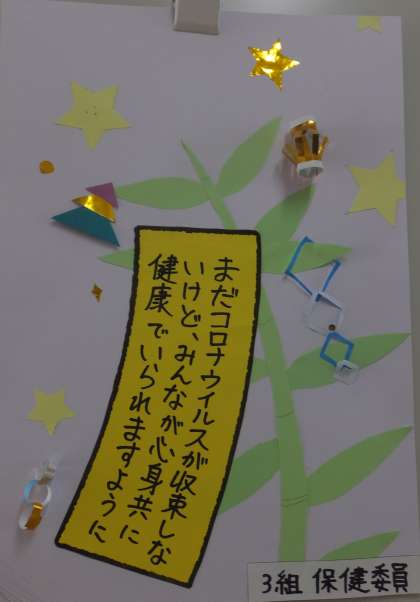 まだコロナウイルスが収束しな
いけど、みんなが心身共に
健康でいられますように
3組 保健委員